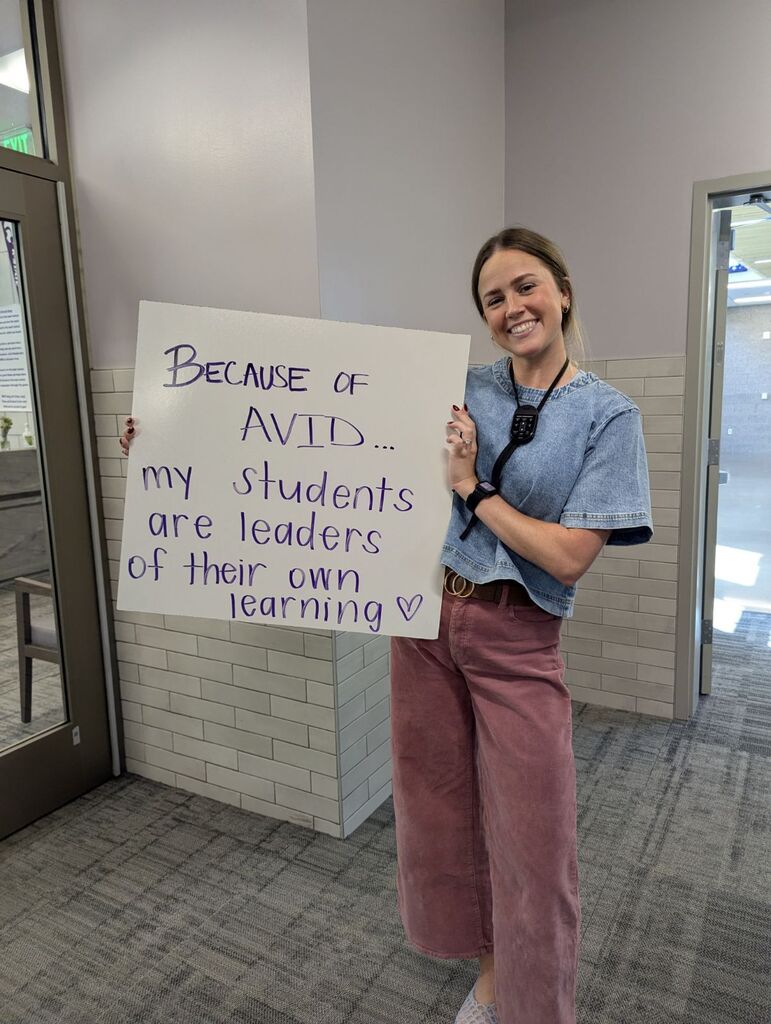 BECAUSE OF
AVID...
my students
are leaders
of their own
learning ♡